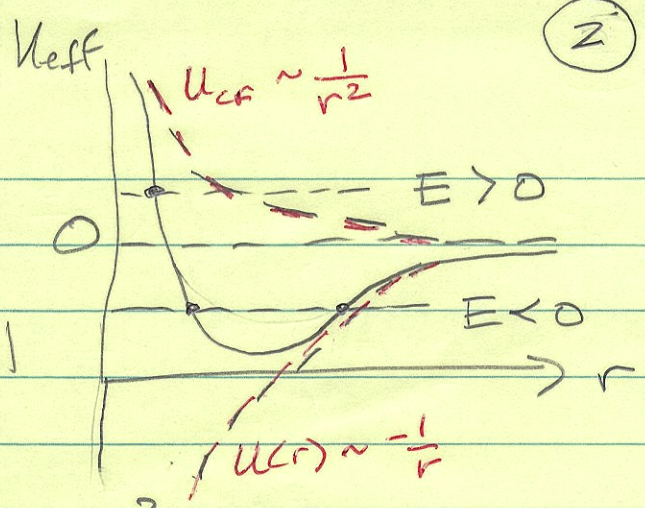 U_eff
②
U_CF ~ 1/r²
E > 0
0
E < 0
r
U(r) ~ -1/r